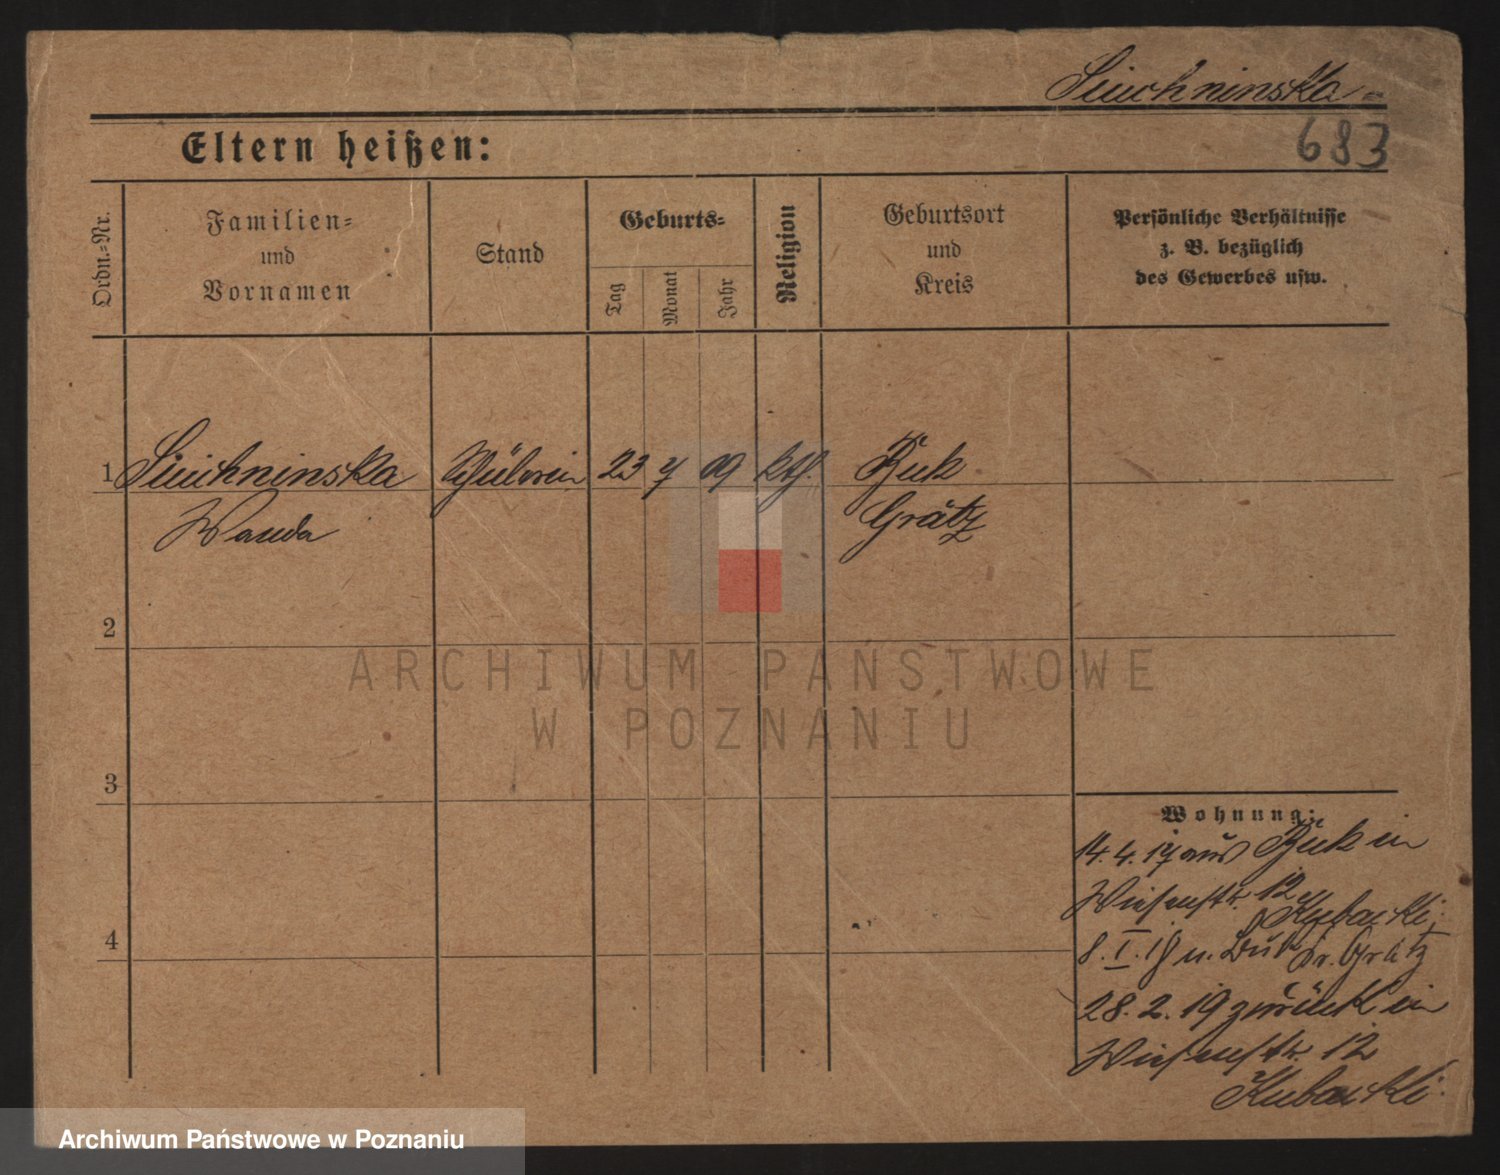 Siuchninska
683
Eltern heißen:
Ordn.-Nr.
Familien-
und
Vornamen
Stand
Geburts-
Tag
Monat
Jahr
Religion
Geburtsort
und
Kreis
Persönliche Verhältnisse
z. B. bezüglich
des Gewerbes usw.
1 Siuchninska Schülerin 23 7 09 kth. Buk
Wanda Grätz
2
3
4
Wohnung:
14. 4. 17 aus Buk in
Wiesenstr. 12
Kubacki.
8. I. 18 n. Buk Kr. Grätz
28. 2. 19 zurück in
Wiesenstr. 12
Kubacki.
ARCHIWUM PAŃSTWOWE
W POZNANIU
Archiwum Państwowe w Poznaniu